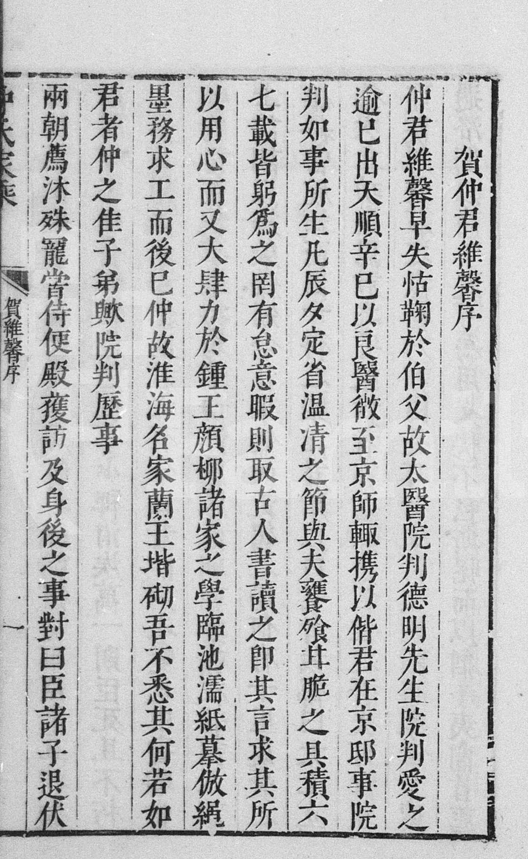 賀仲君維馨序
仲君維馨早失怙鞠於伯父故太醫院判德明先生院判愛之
逾已出天順辛巳以良醫徴至京師輙携以偕君在京邸事院
判如事所生凡辰夕定省温凊之節與夫饔飱甘脆之具積六
七載皆躬爲之罔有怠意暇則取古人書讀之卽其言求其所
以用心而又大肆力於鍾王顔柳諸家之學臨池濡紙摹倣絕
墨務求工而後已仲故淮海名家蘭玉堦砌吾不悉其何若如
君者仲之佳子弟歟院判歷事
兩朝薦沐殊寵嘗侍便殿獲訪及身後之事對曰臣諸子退伏
仲氏家乘
賀維馨序
一